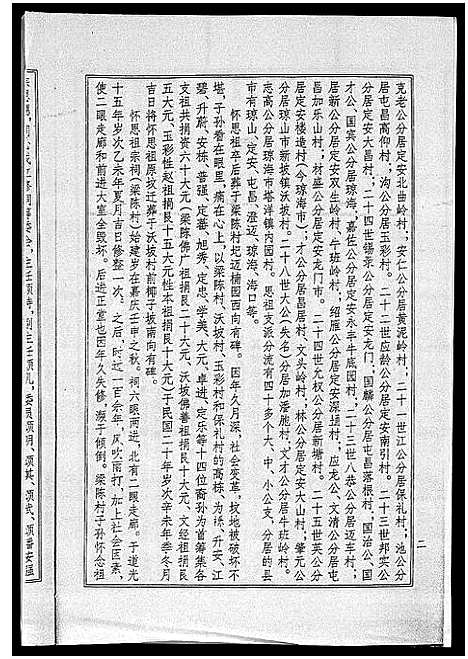 克老公分居定安北曲岭村；安仁公分居黄泥岭村，二十一世江公分居保礼村；池公分
居屯昌高仰村；沟公分居玉彩村。二十二世应龄公分居定安南引村。二十三世邦实公
分居定安大昌村；二十四世锡录公分居定安龙门；国麟公分居屯昌落根村；国治公、国
才公、国宾公分居琼海，嘉佐公分居定安永丰牛底园村，二十三世八恭公分居迈车村；
居新公分居定安双生岭村，午班岭村；绍雁公分居定安深埇村；应龙公、文清公分居屯
昌加乐山村；材盛公分居定安龙门市。二十四世允权公分居新塘村。二十五世英公分
居定安楼造村（今琼海市）；才具公分居昌村、文头岭村；林公分居定安大山村；肇元公
分居琼山市新坡镇沃坡村。二十八世大公（失名）分居加渗脆村；文才公分居牛班岭村。
志高公分居琼海市塔洋镇内园村。思祖支派分流有四十多个大、中、小公支，分居的县
市有琼山、定安、屯昌、澄迈、琼海、海口等。
怀思祖卒后葬于梁陈村圮迈横園西向有碑。因年久月深，社会变革，坟地被破坏不
堪，子孙看在眼里，痛在心上，以梁陈村、沃坡村、玉彩村和保礼村的高栋、为祎、升安、江
碧、升蔚、安栋、普强、定春、旭秀、定忠、学美、大元、卓进、定乐等十四位裔孙为首筹集各
支祖共捐资六十大元（梁陈佛广祖捐艮二十大元、沃坡佛养祖捐艮十大元、文经祖捐艮
五大元，玉彩性赵祖捐艮十五大元性本祖捐艮十大元）于民国二十年岁次辛未年季冬月
吉日将怀思祖原坟迁葬于沃坡村前椰子坡南向有碑。
怀思祖宗祠（梁陈村）始建岁在嘉庆壬申之秋。祠六眼两进，北有二眼走廊。于道光
十五年岁次乙未年夏月吉日修整一次。之后，时近一百余年，风吹雨打，加上社会因素，
使二眼走廊和前进大堂全毁坏。后进正堂也因年久失修，濒于倾倒。梁陈村子孙怀念祖
二